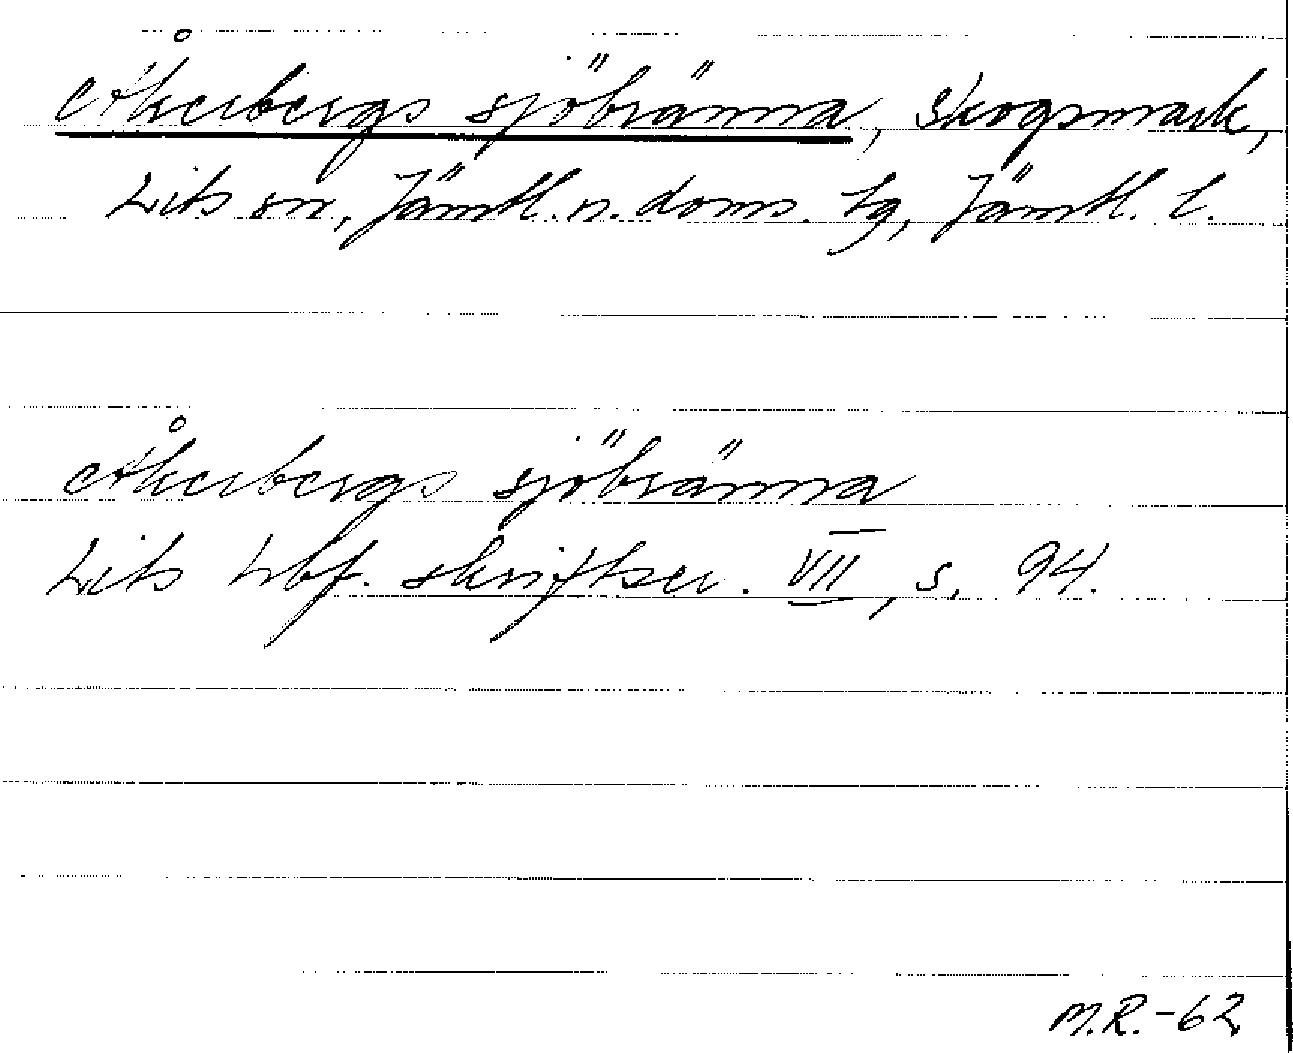 Åkerbergs sjöbränna, skogsmark,
Lits sn, Jämtl. n. doms. tg, Jämtl. l.
Åkerbergs sjöbränna
Lits hbf. skriftser. VII, s. 94.
M.R.-62